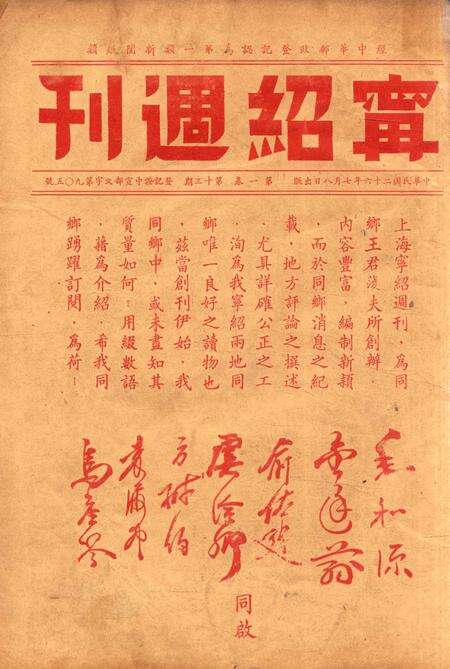 經中華郵政登記認為第一類新聞紙類
甯紹週刊
中華民國二十六年七月八日出版 第一卷 第十三期 登記證中宣部文字第九〇五號
上海寧紹週刊，為同
鄉王君浚夫所創辦．
內容豐富，編制新穎
．而於同鄉消息之紀
載．地方評論之撰述
．尤具詳確公正之工
．洵為我寧紹兩地同
鄉唯一良好之讀物也
．茲當創刊伊始．我
同鄉中．或未盡知其
質量如何．用綴數語
．藉為介紹．希我同
鄉踴躍訂閱．為荷！
毛和源
金廷蓀
俞佐庭
虞洽卿
方椒伯
袁履登
烏崖琴
同啟